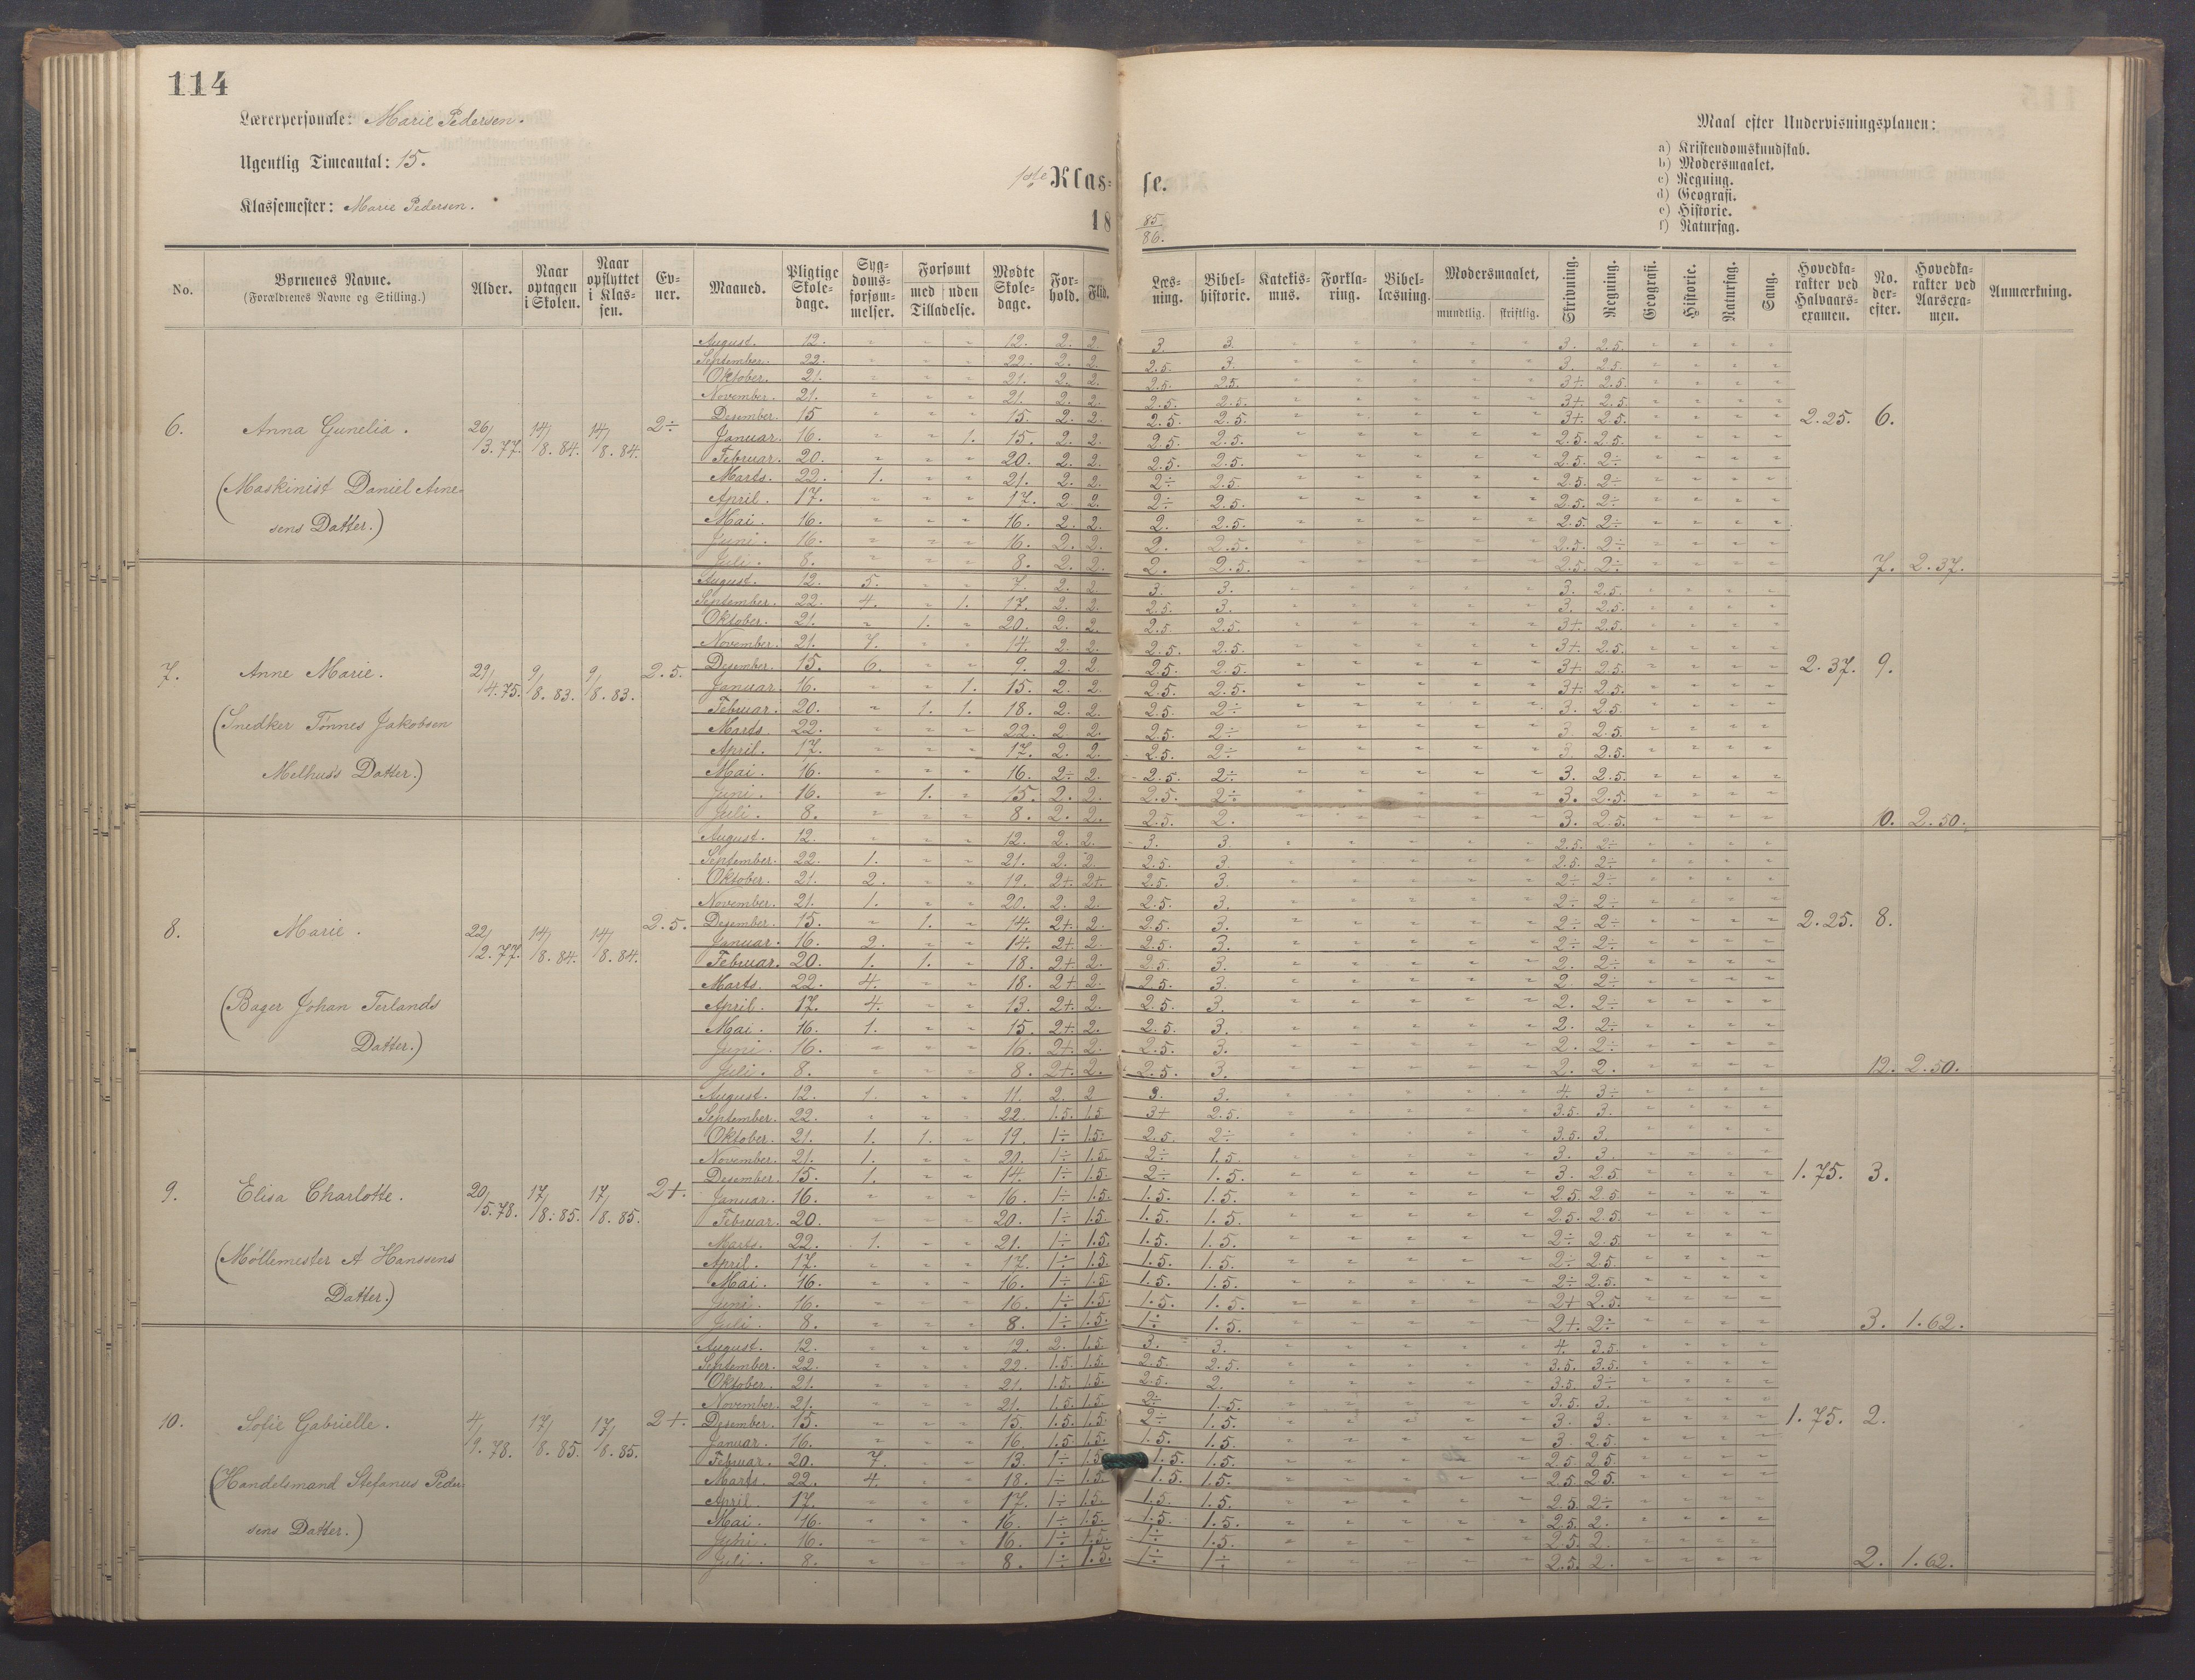 114
Lærerpersonale: Marie Pedersen.
Ugentlig Timeantal: 15.
Klassemester: Marie Pedersen.
1ste Klasse.
1885/86.
Maal efter Undervisningsplanen:
a) Kristendomskundskab.
b) Modersmaalet.
c) Regning.
d) Geografi.
e) Historie.
f) Naturfag.
No. Børnenes Navne. (Forældrenes Navne og Stilling.) Alder. Naar optagen i Skolen. Naar opflyttet i Klassen. Evner. Maaned. Pligtige Skoledage. Sygdomsforsømmelser. Forsømt med uden Tilladelse. Mødte Skoledage. Forhold. Flid. Læsning. Bibelhistorie. Katekismus. Forklaring. Bibellæsning. Modersmaalet, mundtlig. skriftlig. Skrivning. Regning. Geografi. Historie. Naturfag. Sang. Hovedkarakter ved Halvaarsexamen. No. derefter. Hovedkarakter ved Aarsexamen. Anmærkning.
6. Anna Gunelia. 26/3.77. 14/8.84. 14/8.84. 2÷
(Maskinist Daniel Arnesens Datter.)
August. 12. " " " 12. 2. 2. 3. 3. " " " " " 3. 2.5. " " " "
September. 22. " " " 22. 2. 2. 2.5. 3. " " " " " 3. 2.5. " " " "
Oktober. 21. " " " 21. 2. 2. 2.5. 2.5. " " " " " 3+. 2.5. " " " "
November. 21. " " " 21. 2. 2. 2.5. 2.5. " " " " " 3+. 2.5. " " " "
Desember. 15 " " " 15. 2. 2. 2.5. 2.5. " " " " " 3+. 2.5. " " " " 2.25. 6.
Januar. 16. " " 1. 15. 2. 2. 2.5. 2.5. " " " " " 2.5. 2.5. " " " "
Februar. 20. " " " 20. 2. 2. 2.5. 2.5. " " " " " 2.5. 2÷ " " " "
Marts. 22. 1. " " 21. 2. 2. 2÷ 2.5. " " " " " 2.5. 2÷ " " " "
April. 17. " " " 17. 2. 2. 2÷ 2.5. " " " " " 2.5. 2÷ " " " "
Mai. 16. " " " 16. 2. 2. 2. 2.5. " " " " " 2.5. 2÷ " " " "
Juni. 16. " " " 16. 2. 2. 2. 2.5. " " " " " 2.5. 2÷ " " " "
Juli. 8. " " " 8. 2. 2. 2. 2.5. " " " " " 2.5. 2÷ " " " " 7. 2.37.
7. Anne Marie. 29/4.75. 9/8.83. 9/8.83. 2.5.
(Snedker Tønnes Jakobsen Melhus's Datter.)
August. 12. 5. " " 7. 2. 2. 3. 3. " " " " " 3. 2.5. " " " "
September. 22. 4. " 1. 17. 2. 2. 2.5. 3. " " " " " 3. 2.5. " " " "
Oktober. 21. " 1. " 20. 2. 2. 2.5. 2.5. " " " " " 3+. 2.5. " " " "
November. 21. 7. " " 14. 2. 2. 2.5. 2.5. " " " " " 3+. 2.5. " " " "
Desember. 15. 6. " " 9. 2. 2. 2.5. 2.5. " " " " " 3+ 2.5. " " " " 2.37. 9.
Januar. 16. " " 1. 15. 2. 2. 2.5. 2.5. " " " " " 3+. 2.5. " " " "
Februar. 20. " 1. 1. 18. 2. 2. 2.5. 2÷ " " " " " 3. 2.5. " " " "
Marts. 22. " " " 22. 2. 2. 2.5. 2÷ " " " " " 3. 2.5. " " " "
April. 17. " " " 17. 2. 2. 2.5. 2÷ " " " " " 3 2.5. " " " "
Mai. 16. " " " 16. 2÷ 2. 2.5. 2÷ " " " " " 3. 2.5. " " " "
Juni. 16. " 1. " 15. 2. 2. 2.5. 2÷ " " " " " 3. 2.5. " " " "
Juli. 8. " " " 8. 2. 2. 2.5. 2. " " " " " 3. 2.5. " " " " 10. 2.50.
8. Marie. 22/2.77. 14/8.84. 14/8.84. 2.5.
(Bager Johan Terlands Datter.)
August. 12. " " " 12. 2. 2. 3. 3. " " " " " 2.5. 2÷ " " " "
September. 22. 1. " " 21. 2. 2. 2.5. 3. " " " " " 2.5. 2÷ " " " "
Oktober. 21. 2. " " 19. 2+. 2+. 2.5. 3. " " " " " 2÷ 2÷ " " " "
November. 21. 1. " " 20. 2. 2. 2.5. 3. " " " " " 2÷ 2÷ " " " "
Desember. 15. " 1. " 14. 2+. 2. 2.5. 3. " " " " " 2÷ 2÷ " " " " 2.25. 8.
Januar. 16. 2. " " 14. 2+ 2. 2.5. 3. " " " " " 2÷ 2÷ " " " "
Februar. 20. 1. 1. " 18. 2+. 2. 2.5. 3. " " " " " 2. 2÷ " " " "
Marts. 22. 4. " " 18. 2+ 2. 2.5. 3. " " " " " 2. 2÷ " " " "
April. 17. 4. " " 13. 2+. 2. 2.5. 3. " " " " " 2. 2÷ " " " "
Mai. 16. 1. " " 15. 2+. 2. 2.5. 3. " " " " " 2. 2÷ " " " "
Juni. 16. " " " 16. 2+. 2. 2.5. 3. " " " " " 2. 2÷ " " " "
Juli. 8. " " " 8. 2+. 2. 2.5. 3. " " " " " 2. 2. " " " " 12. 2.50.
9. Elisa Charlotte. 20/5.78. 17/8.85. 17/8.85. 2+.
(Møllemester A Hanssens Datter.)
August. 12. 1. " " 11. 2. 2 3. 3. " " " " " 4. 3÷ " " " "
September. 22. " " " 22. 1.5. 1.5. 3+ 2.5. " " " " " 3.5. 3. " " " "
Oktober. 21. 1. 1. " 19. 1÷ 1.5. 2.5. 2÷ " " " " " 3.5. 3. " " " "
November. 21. 1. " " 20. 1÷ 1.5. 2÷ 1.5. " " " " " 3. 3. " " " "
Desember. 15. 1. " " 14. 1÷ 1.5. 2÷ 1.5. " " " " " 3. 2.5. " " " " 1.75. 3.
Januar. 16. " " " 16. 1÷ 1.5. 1.5. 1.5. " " " " " 2.5. 2.5 " " " "
Februar. 20. " " " 20. 1÷ 1.5. 1.5. 1.5. " " " " " 2.5. 2.5. " " " "
Marts. 22. 1. " " 21. 1÷ 1.5. 1.5. 1.5. " " " " " 2÷ 2.5. " " " "
April. 17. " " " 17. 1÷ 1.5. 1.5. 1.5. " " " " " 2÷ 2.5. " " " "
Mai. 16. " " " 16. 1÷ 1.5. 1.5. 1.5. " " " " " 2÷ 2.5. " " " "
Juni. 16. " " " 16. 1÷ 1.5. 1.5. 1.5. " " " " " 2+ 2.5. " " " "
Juli. 8. " " " 8. 1÷ 1.5. 1÷ 1.5. " " " " " 2+. 2÷ " " " " 3. 1.62.
10. Sofie Gabrielle. 4/9.78. 17/8.85. 17/8.85. 2+.
(Handelsmand Stefanus Pedersens Datter.)
August. 12. " " " 12. 2. 1.5. 3. 3. " " " " " 4. 3.5. " " " "
September. 22. " " " 22. 1.5. 1.5. 2.5. 2.5. " " " " " 3.5. 3.5. " " " "
Oktober. 21. " " " 21. 1.5. 1.5. 2.5. 2. " " " " " 3.5. 3÷ " " " "
November. 21. " " " 21. 1.5. 1.5. 2÷ 1.5. " " " " " 3.5. 3. " " " "
Desember. 15. " " " 15. 1.5. 1.5. 2÷ 1.5. " " " " " 3. 3. " " " " 1.75. 2.
Januar. 16. " " " 16. 1.5. 1.5. 1.5. 1.5. " " " " " 3. 2.5. " " " "
Februar. 20. 7. " " 13. 1÷ 1.5. 1.5. 1.5. " " " " " 2.5 2.5 " " " "
Marts. 22. 4. " " 18. 1÷ 1.5. 1.5. 1.5. " " " " " 2.5. 2.5. " " " "
April. 17. " " " 17. 1÷ 1.5. 1.5. 1.5. " " " " " 2.5. 2÷ " " " "
Mai. 16. " " " 16. 1÷ 1.5. 1.5. 1.5. " " " " " 2.5. 2. " " " "
Juni. 16. " " " 16. 1÷ 1.5. 1÷ 1.5. " " " " " 2.5. 2. " " " "
Juli. 8. " " " 8. 1÷ 1.5. 1÷ 1÷ " " " " " 2.5. 2. " " " " 2. 1.62.